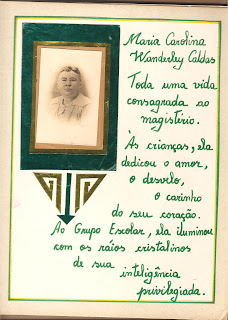 Maria Carolina
Wanderley Caldas
Toda uma vida
consagrada ao
magistério.
Às crianças, ela
dedicou o amor,
o desvelo,
o carinho
do seu coração.
Ao Grupo Escolar, ela iluminou
com os ráios cristalinos
de sua inteligência
privilegiada.